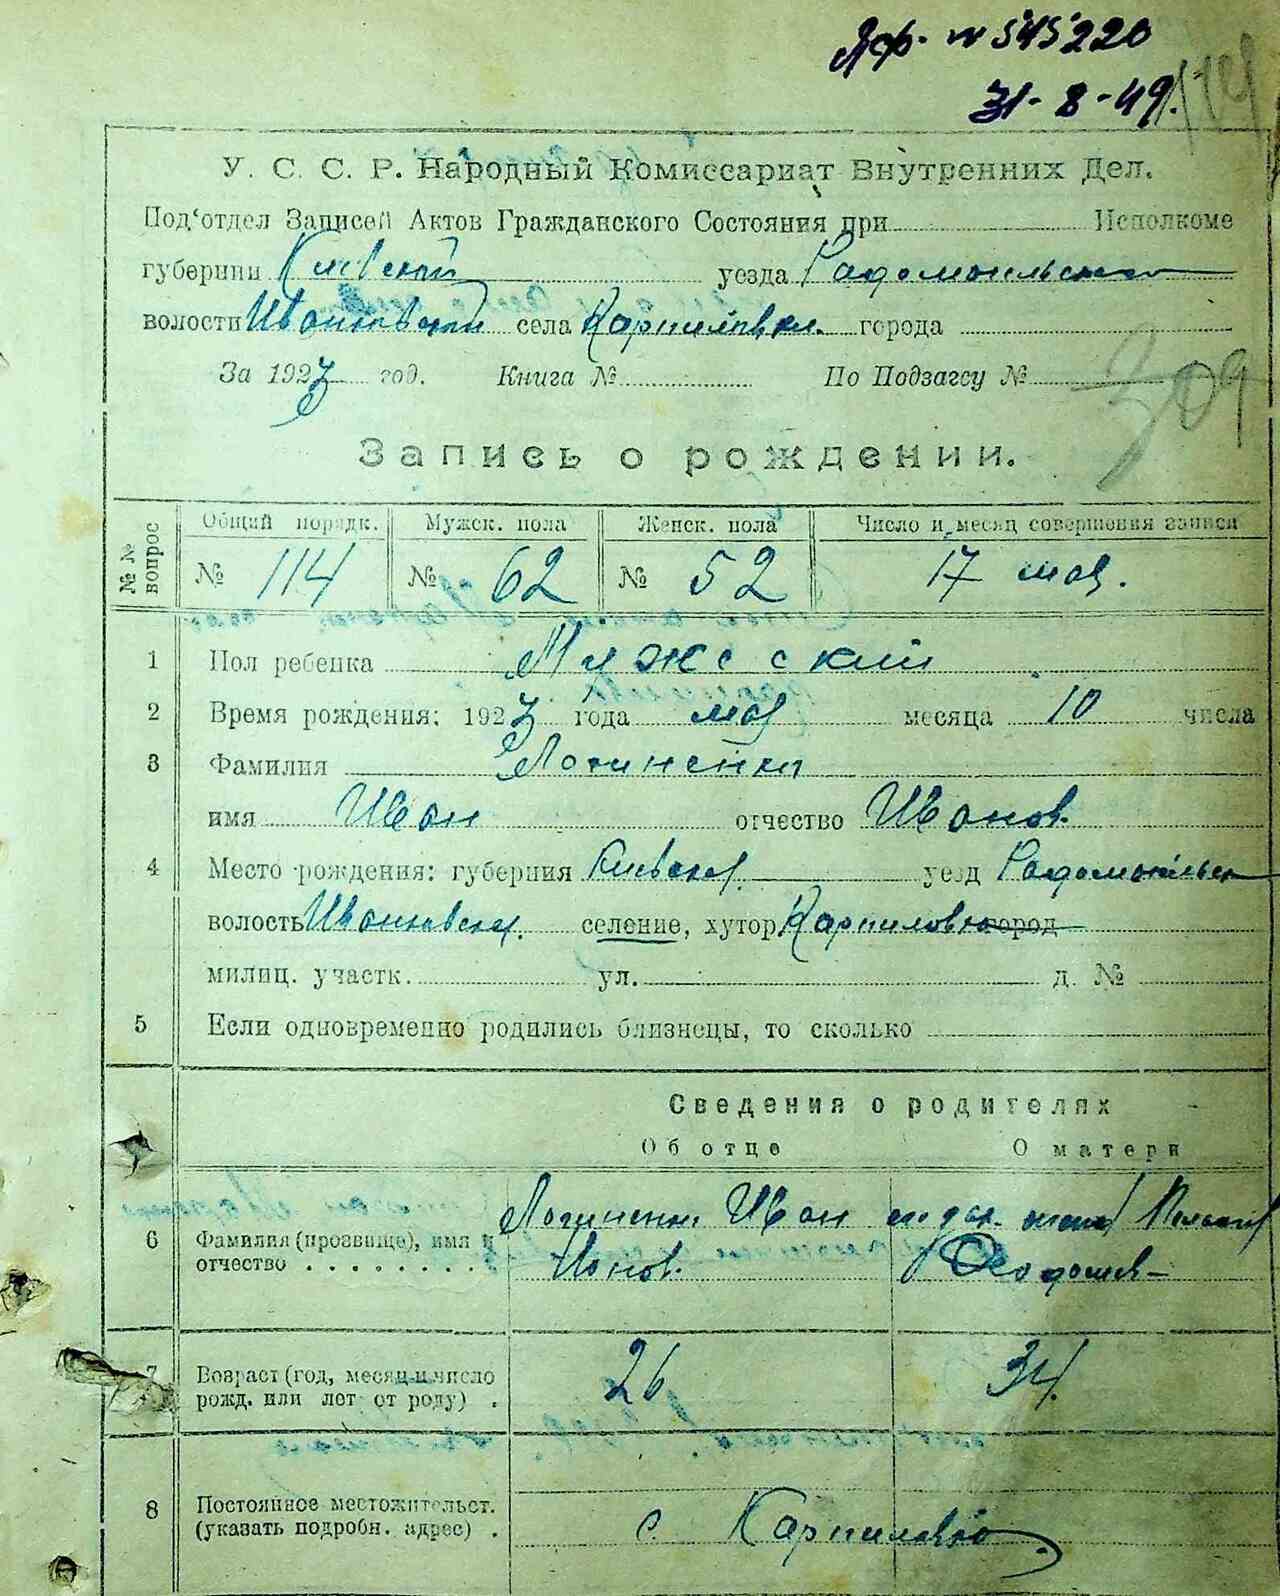 № 545220
31-8-49.
У. С. С. Р. Народный Комиссариат Внутренних Дел.
Под'отдел Записей Актов Гражданского Состояния при Исполкоме
губернии Киевской уезда Радомысльского
волости Иванковской села Карпиловка города
За 1923 год. Книга № По Подзагсу № 309
Запись о рождении.
№ № вопрос
Общий порядк. Мужск. пола Женск. пола Число и месяц совершения записи
№ 114 № 62 № 52 17 мая.
1 Пол ребенка Мужсский
2 Время рождения: 1923 года мая месяца 10 числа
3 Фамилия
имя Иван отчество Иванов.
4 Место рождения: губерния Киевская уезд Радомысльск
волость Иванковская. селение, хутор Карпиловка город
милиц. участк. ул. д. №
5 Если одновременно родились близнецы, то сколько
Сведения о родителях
Об отце О матери
6 Фамилия (прозвище), имя и отчество . . . . . . . . Иван
7 Возраст (год, месяц и число рожд. или лет от роду) . 26 34.
8 Постоянное местожительст. (указать подробн. адрес) . с. Карпиловка